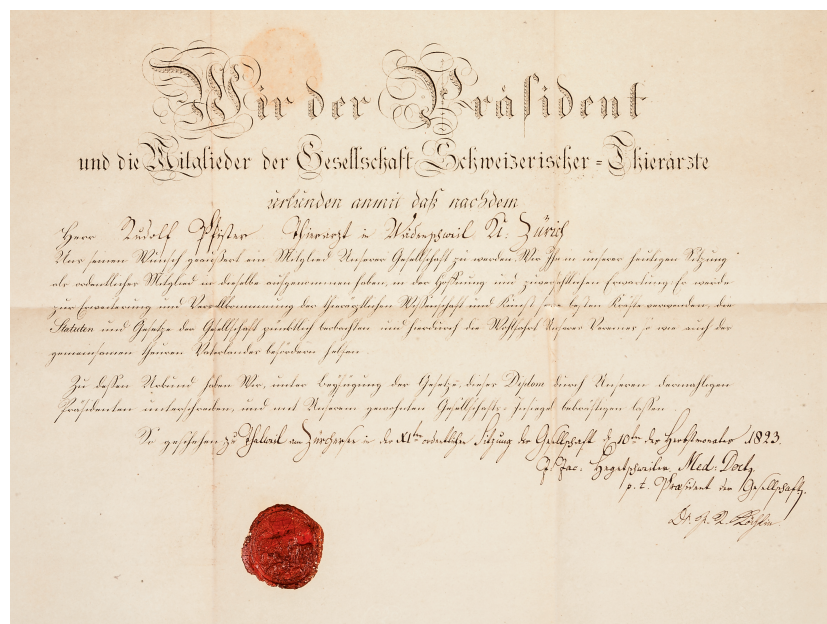 Wir der Präsident
und die Mitglieder der Gesellschaft Schweizerischer=Thierärzte
urkunden anmit daß nachdem
Herr Rudolf Pfister Thierarzt in Wädenschweil Kt. Zürich
Uns seinen Wunsch geäussert ein Mitglied Unserer Gesellschaft zu werden, Wir Ihn in unserer heutigen Sitzung
als ordentliches Mitglied in dieselbe aufgenommen haben, in der Hoffnung und zuversichtlichen Erwartung er werde
zur Erweiterung und Vervollkommnung der thierärztlichen Wissenschaft und Kunst seine besten Kräfte verwenden, die
Statuten und Gesetze der Gesellschaft pünktlich beobachten und hierdurch die Wohlfahrt Unseres Vereines so wie auch des
gemeinsamen theuren Vaterlandes befördern helfen.
Zu dessen Urkund haben Wir, unter Beyfügung der Gesetze, dieses Diplom durch Unseren dermahligen
Präsidenten unterschreiben, und mit Unserem gewohnten Gesellschafts=Insiegel bekräftigen lassen.
So geschehen zu Thalweil am Zürchersee in der XIten ordentlichen Sitzung der Gesellschaft d. 10ten des Herbstmonates 1823.
Jac. Hegetschweiler, Med: Doct.
p. t. Præsident der Gesellschaft.
Dr. J. R. Köchlin